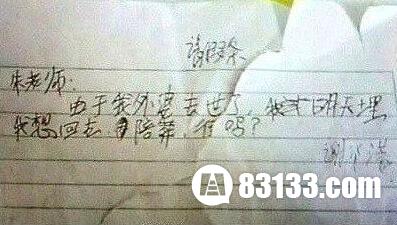 请假条
朱老师:
由于我外婆去世了,我才明天埋
我想回去陪葬,行吗?
83133.com